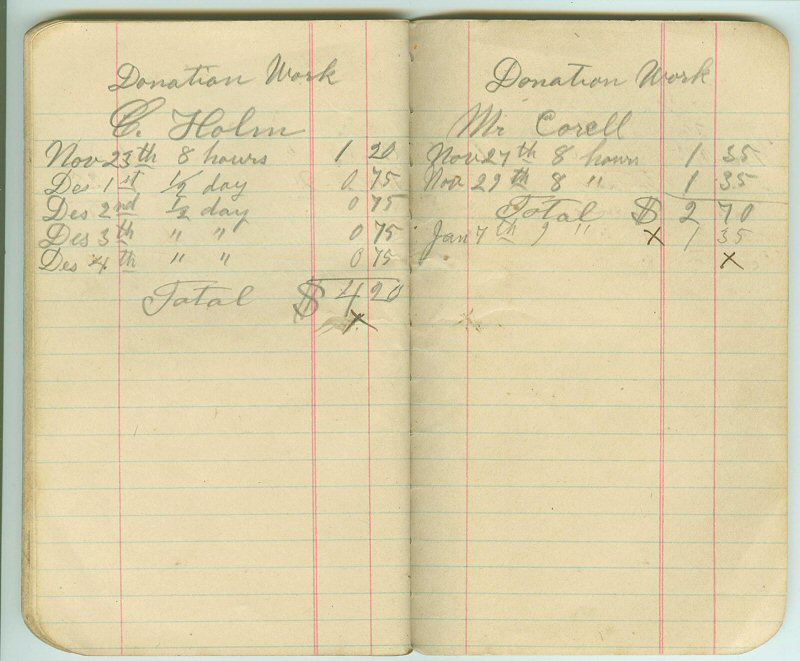 Donation Work
C. Holm
Nov 23th 8 hours 1 20
Des 1st 1/2 day 0 75
Des 2nd 1/2 day 0 75
Des 3th " " 0 75
Des 4th " " 0 75
Total $ 4 20
x
Donation Work
Mr Corell
Nov 27th 8 hours 1 35
Nov 29th 8 " 1 35
Total $ 2 70
Jan 7th 9 " x 1 35
x